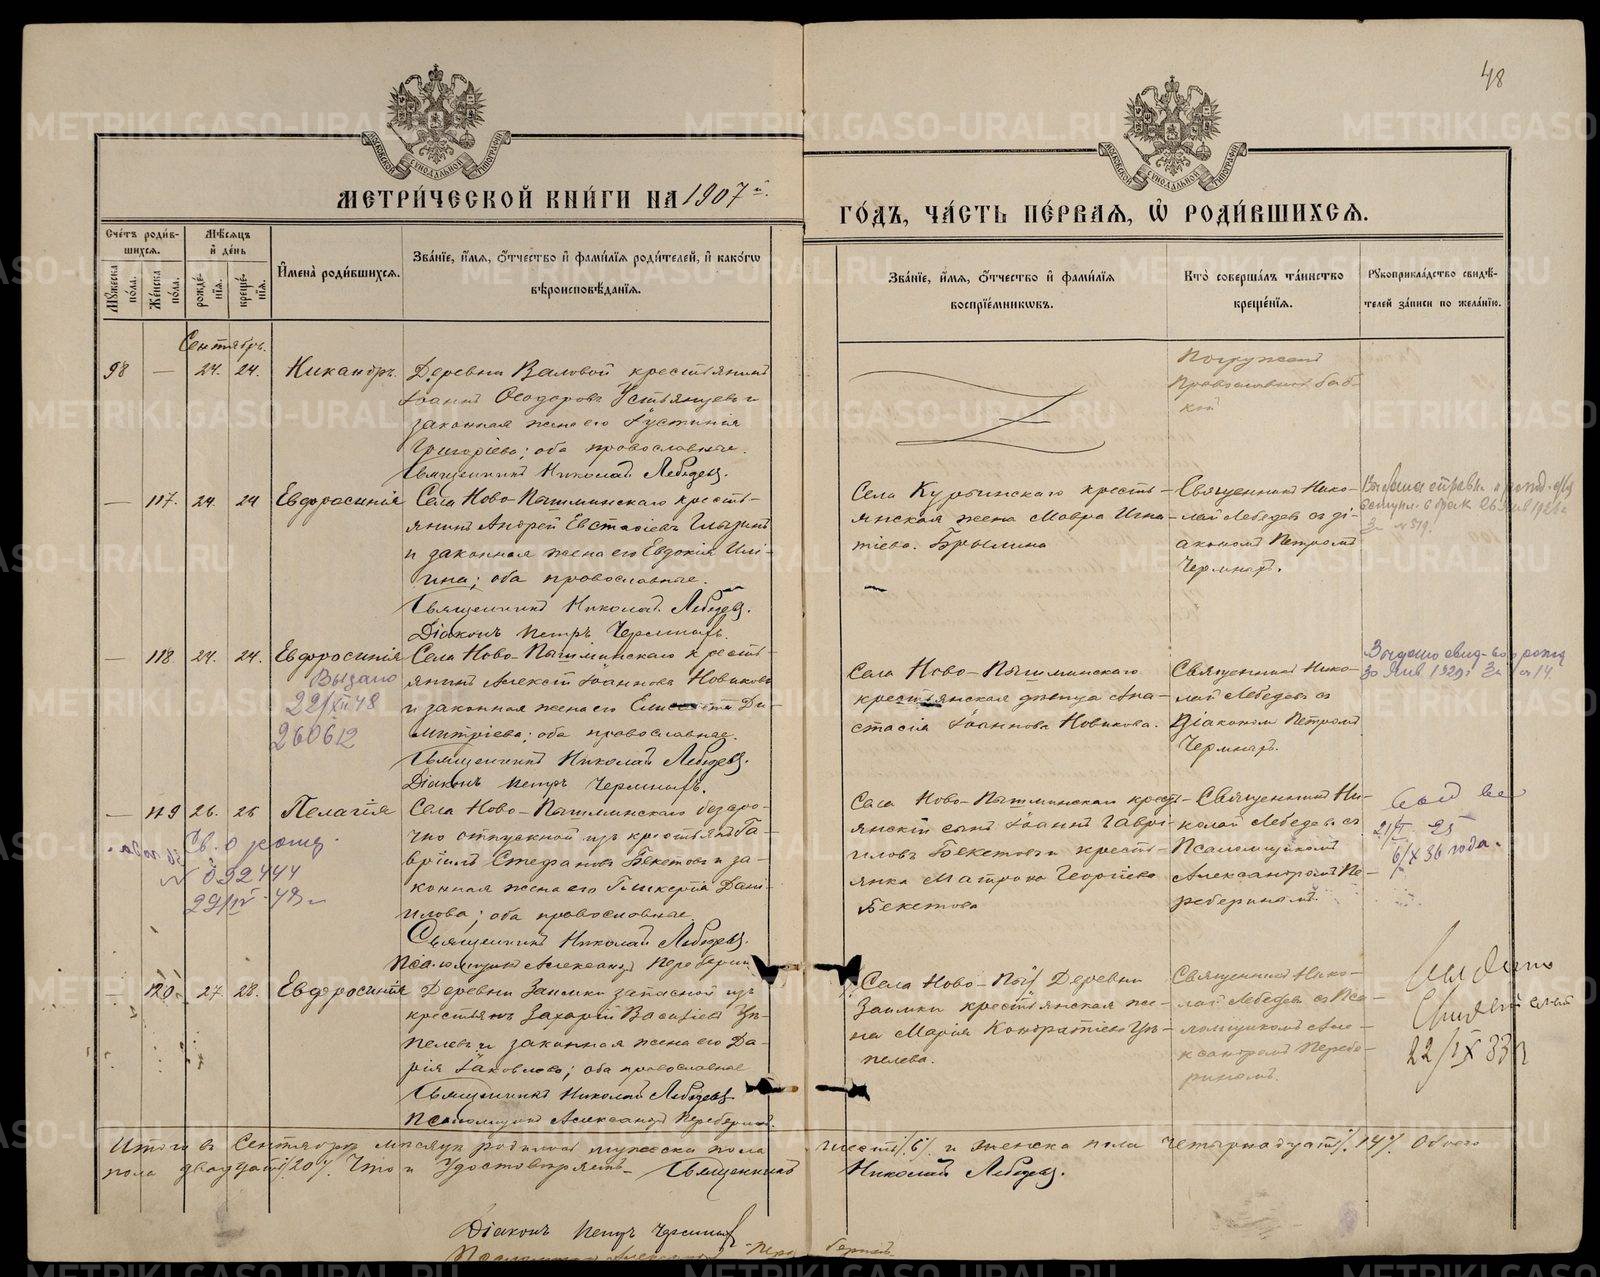 48
МОСКОВСКОЙ СѴНОДАЛЬНОЙ ТИПОГРАФІИ
МОСКОВСКОЙ СѴНОДАЛЬНОЙ ТИПОГРАФІИ
МЕТРИ́ЧЕСКОЙ КНИ́ГИ НА 1907 й.
ГО́ДЪ, ЧА́СТЬ ПЕ́РВАЯ, Ѡ҆ РОДИ́ВШИХСЯ.
Сче́тъ роди́в-
шихся.
Мѣ́сяцъ
и҆ де́нь
Мꙋ́жеска
по́ла.
Же́нска
по́ла.
рожде́-
нїя.
креще́-
нїя.
И҆мена̀ роди́вшихся.
Зва́нїе, и҆́мя, ѻ҆́тчество и҆ фами́лїя роди́телей, и҆ како́гѡ
вѣроисповѣ́данїя.
Зва́нїе, и҆́мя, ѻ҆́тчество и҆ фами́лїя
воспрїе́мникѡвъ.
Кто̀ соверша́лъ та́инство
креще́нїя.
Рꙋкоприкла́дство свидѣ́-
телей за́писи по жела́нїю.
Сентябрь.
98 — 24. 24. Никандръ.
Деревни Валовой крестьянинъ
Іоаннъ Ѳеодоровъ Устьянцевъ и
законная жена его Іустинія
Григоріева; оба православные.
Священникъ Николай Лебедевъ.
Погружен
православной баб-
кой
— 117. 24. 24 Евфросинія
Села Ново-Пышминскаго кресть-
янинъ Андрей Евстафіевъ
и законная жена его Евдокія Илі-
ина; оба православные.
Священникъ Николай Лебедевъ.
Діаконъ Петръ Чермныхъ.
Села Курьинскаго кресть-
янская жена Мавра Игна-
тіева. Брылина
Священникъ Нико-
лай Лебедевъ съ ді-
акономъ Петромъ
Чермныхъ.
— 118 24. 24. Евфросинія
Выдано
22/XII 48
260612
Села Ново-Пышминскаго кресть-
янинъ Алексій Іоанновъ Новиковъ
и законная жена его Елисавета Ди-
митріева; оба православные.
Священникъ Николай Лебедевъ.
Діаконъ Петръ Чермныхъ.
Села Ново-Пышминскаго
крестьянская дѣвица Ана-
стасія Іоаннова Новикова.
Священникъ Нико-
лай Лебедевъ съ
Діакономъ Петромъ
Чермныхъ.
Выдано свид-во о рожд
30 Янв 1929г За № 14.
— 119 26. 26 Пелагія
Св. о рожд.
№ 092444
29/IV-49г
Села Ново-Пышминскаго безсро-
чно отпускной изъ крестьянъ Га-
вріилъ Стефановъ Бекетовъ и за-
конная жена его Гликерія Дані-
илова; оба православные.
Священникъ Николай Лебедевъ.
Псаломщикъ Александръ Переберинъ
Села Ново-Пышминскаго кресть-
янскій сынъ Іоаннъ Гаврі-
иловъ Бекетовъ и кресть-
янка Матрона Георгіева
Бекетова
Священникъ Ни-
колай Лебедевъ съ
Псаломщикомъ
Александромъ Пе-
реберинымъ.
6/X 36 года.
— 120 27 28. Евфросинія
Деревни Заимки запасной изъ
крестьянъ Захарій Василіевъ
и законная жена его Да-
рія Іаковлева; оба православные
Священникъ Николай Лебедевъ
Псаломщикъ Александръ Переберинъ.
Села Ново-Пыш. Деревни
Заимки крестьянская же-
на Марія Кондратіева
Священникъ Нико-
лай Лебедевъ съ Пса-
ломщикомъ Але-
ксандромъ Перебе-
ринымъ.
22/IX 33 г
Итого въ Сентябрѣ мѣсяцѣ родилось мужеска пола шесть /6/ и женска пола четырнадцать /14/. Обоего
пола двадцать /20/. Что и удостовѣряемъ Священникъ Николай Лебедевъ.
Діаконъ Петръ Чермныхъ
Псаломщикъ Александръ Переберинъ.